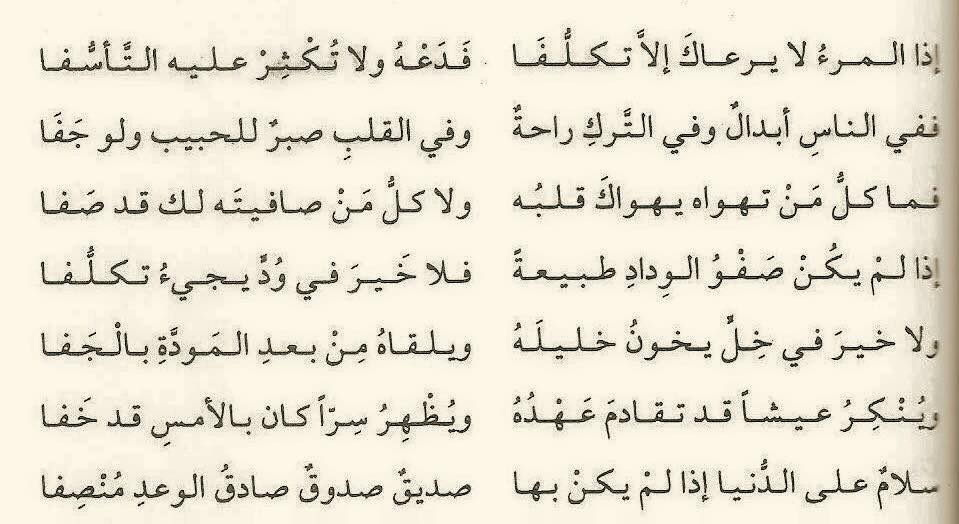 إذا الـمرءُ لا يرعـاكَ إلاَّ تـكـلُّـفَـا فَـدَعْـهُ ولا تُـكْـثِـرْ عـلـيـه الـتَّـأسُّـفـا
ففي الناسِ أبدالٌ وفي التَّركِ راحةٌ وفي القلبِ صبرٌ للحبيب ولو جَفَا
فـمـا كـلُّ مَـنْ تـهـواه يـهـواكَ قـلـبُـه ولا كلُّ مَنْ صافيتَه لك قد صَفا
إذا لمْ يكُنْ صَفْوُ الـوِدادِ طبيعةً فلا خَيرَ في وُدٍّ يجيءُ تكلُّفا
ولا خـيـرَ في خِلٍّ يخونُ خليلَهُ ويـلـقـاهُ مِنْ بعدِ المَودَّةِ بالْجَفا
ويُنْكِرُ عيشاً قد تقادمَ عَهْدُهُ ويُظْهِرُ سِرّاً كان بالأمسِ قد خَفا
سلامٌ على الدُّنيا إذا لمْ يكنْ بها صديقٌ صدوقٌ صادقُ الوعدِ مُنْصِفا